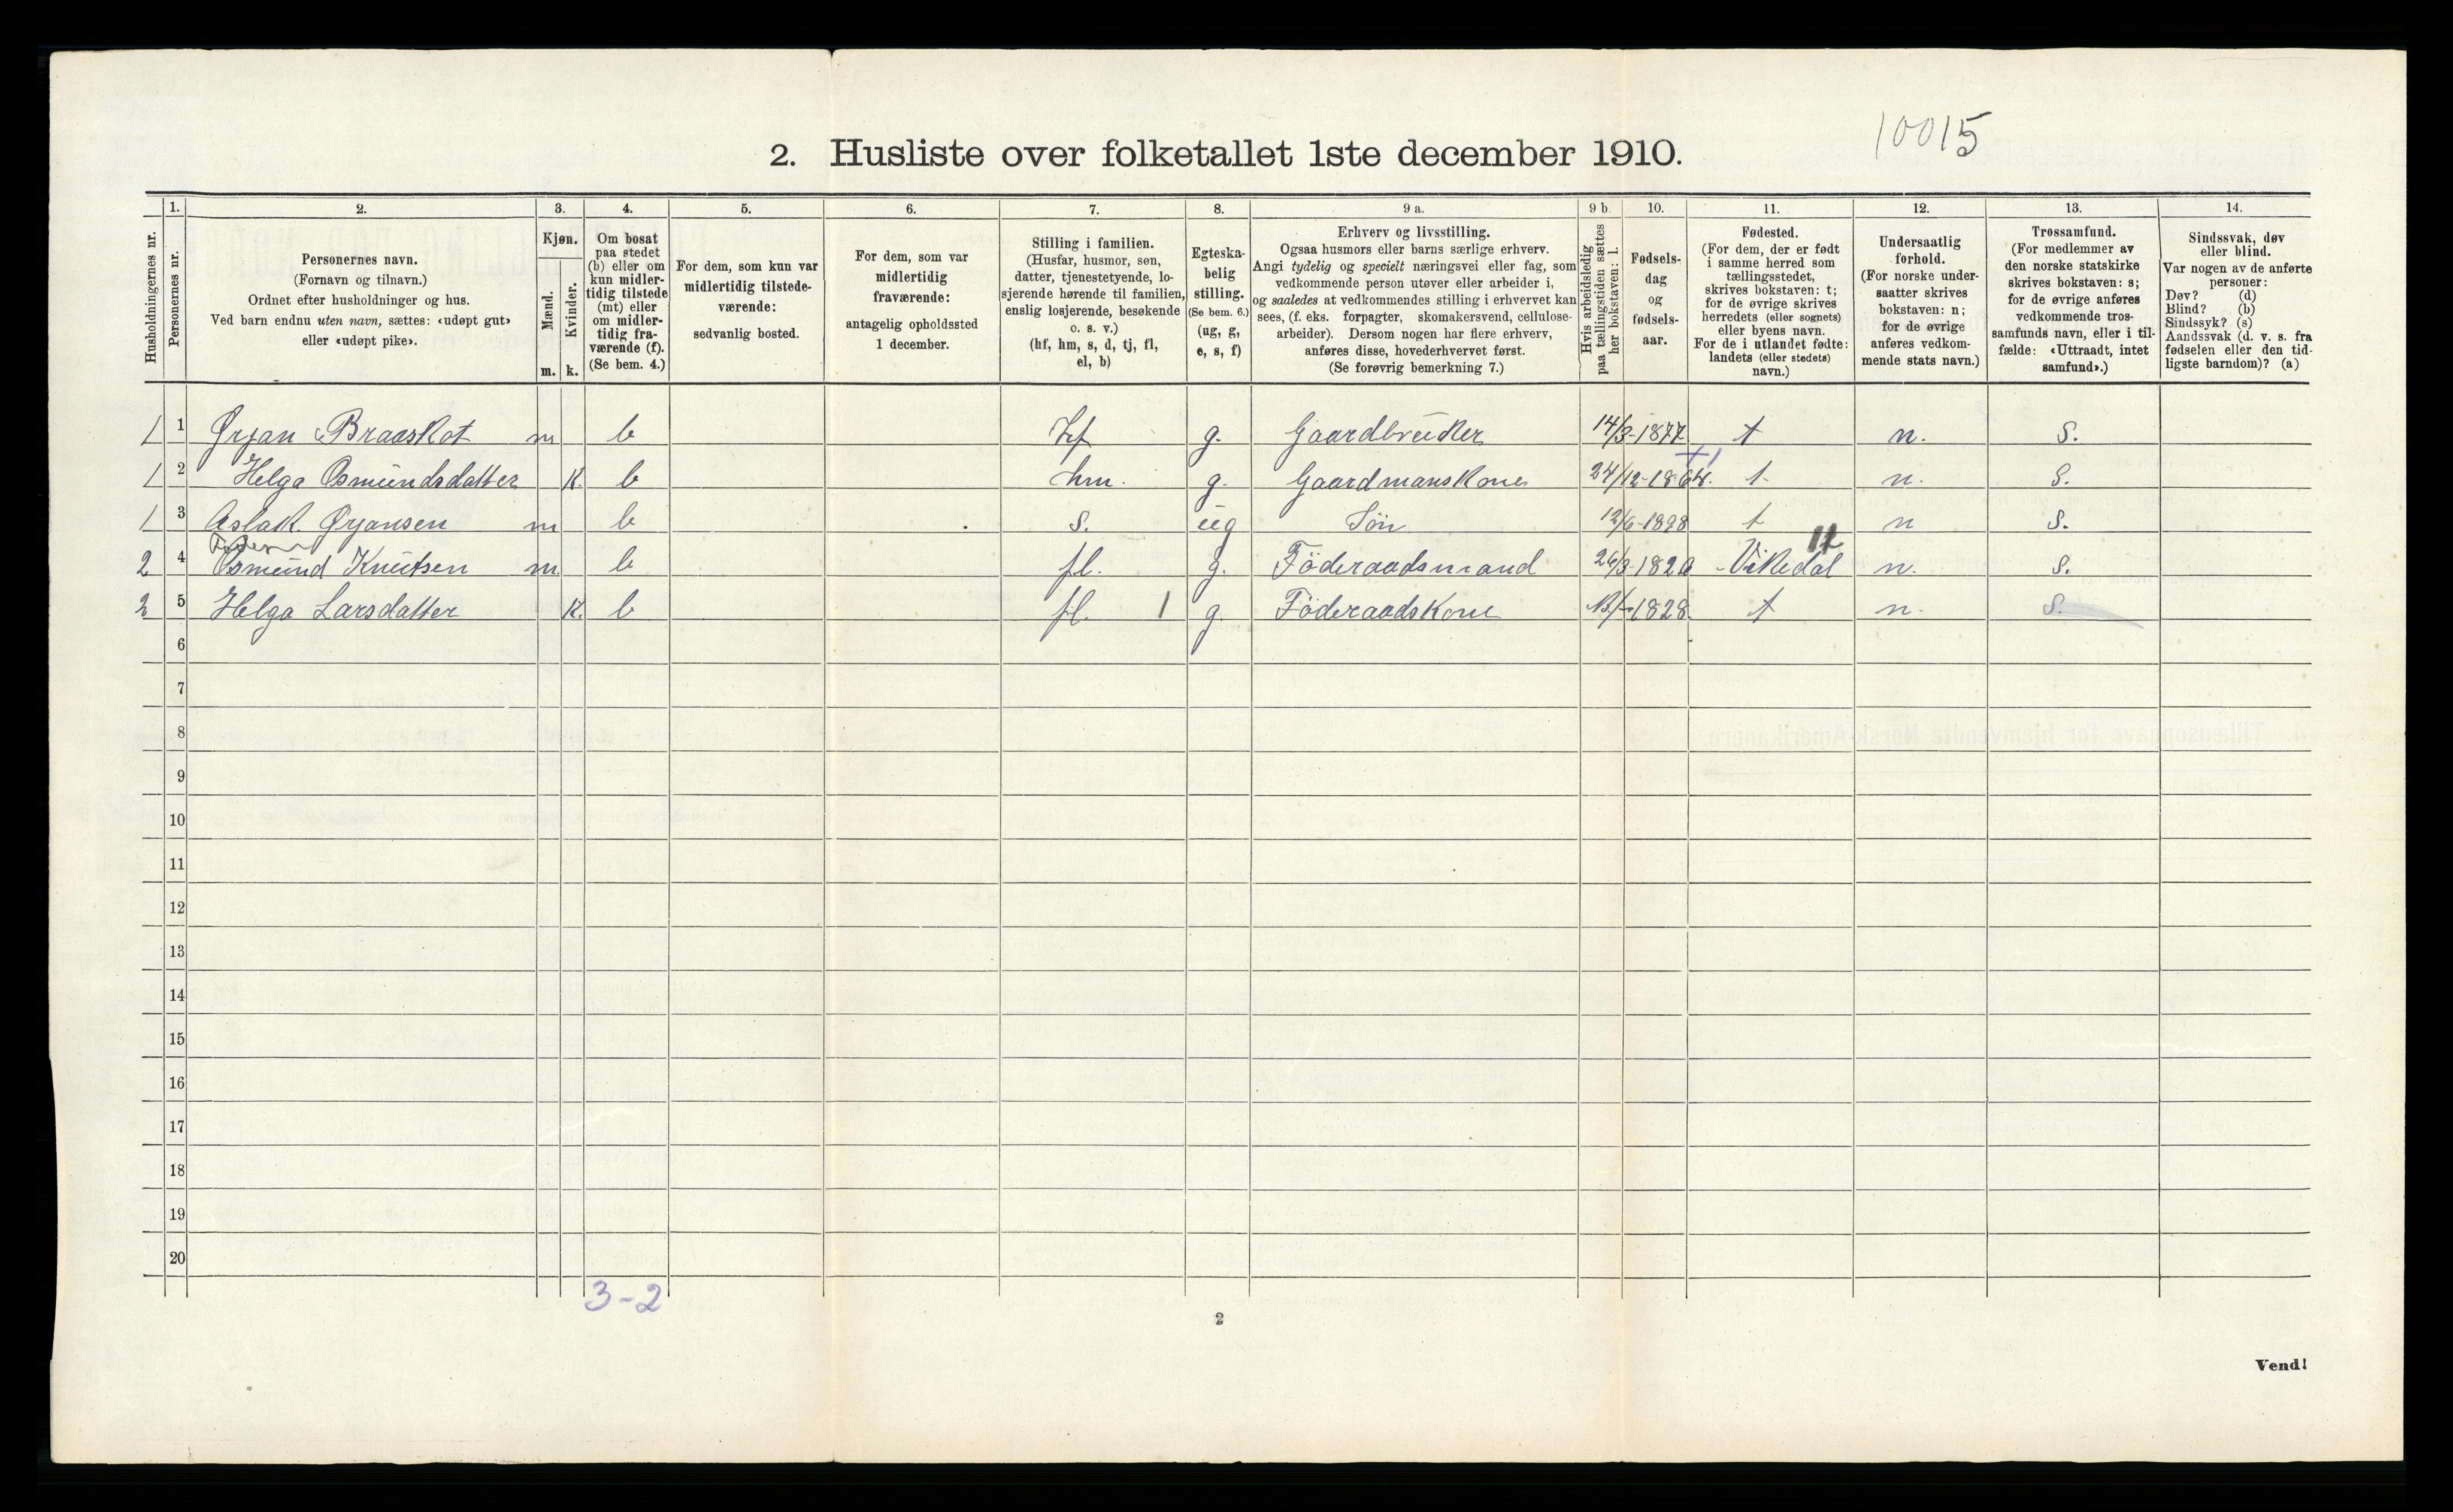 10015
2. Husliste over folketallet 1ste december 1910.
1. 2. 3. 4. 5. 6. 7. 8. 9 a. 9 b. 10. 11. 12. 13. 14.
Husholdningernes nr.
Personernes nr.
Personernes navn.
(Fornavn og tilnavn.)
Ordnet efter husholdninger og hus.
Ved barn endnu uten navn, sættes: «udøpt gut»
eller «udøpt pike».
Kjøn.
Mænd.
Kvinder.
m. k.
Om bosat
paa stedet
(b) eller om
kun midler-
tidig tilstede
(mt) eller
om midler-
tidig fra-
værende (f).
(Se bem. 4.)
For dem, som kun var
midlertidig tilstede-
værende:
sedvanlig bosted.
For dem, som var
midlertidig
fraværende:
antagelig opholdssted
1 december.
Stilling i familien.
(Husfar, husmor, søn,
datter, tjenestetyende, lo-
sjerende hørende til familien,
enslig losjerende, besøkende
o. s. v.)
(hf, hm, s, d, tj, fl,
el, b)
Egteska-
belig
stilling.
(Se bem. 6.)
(ug, g,
e, s, f)
Erhverv og livsstilling.
Ogsaa husmors eller barns særlige erhverv.
Angi tydelig og specielt næringsvei eller fag, som
vedkommende person utøver eller arbeider i,
og saaledes at vedkommendes stilling i erhvervet kan
sees, (f. eks. forpagter, skomakersvend, cellulose-
arbeider). Dersom nogen har flere erhverv,
anføres disse, hovederhvervet først.
(Se forøvrig bemerkning 7.)
Hvis arbeidsledig
paa tællingstiden sættes
her bokstaven: l.
Fødsels-
dag
og
fødsels-
aar.
Fødested.
(For dem, der er født
i samme herred som
tællingsstedet,
skrives bokstaven: t;
for de øvrige skrives
herredets (eller sognets)
eller byens navn.
For de i utlandet fødte:
landets (eller stedets)
navn.)
Undersaatlig
forhold.
(For norske under-
saatter skrives
bokstaven: n;
for de øvrige
anføres vedkom-
mende stats navn.)
Trossamfund.
(For medlemmer av
den norske statskirke
skrives bokstaven: s;
for de øvrige anføres
vedkommende tros-
samfunds navn, eller i til-
fælde: «Uttraadt, intet
samfund».)
Sindssvak, døv
eller blind.
Var nogen av de anførte
personer:
Døv? (d)
Blind? (b)
Sindssyk? (s)
Aandssvak (d. v. s. fra
fødselen eller den tid-
ligste barndom)? (a)
1 1 Ørjan Braaskot m b hf g. Gaardbruker 14/3-1877 t n. s.
1 2 Helga Osmundsdatter k. b hm. g. Gaardmanskone 24/12-1864. t. n. s.
1 3 Aslak Ørjansen m b s. ug Søn 12/6-1898 t n s.
11
2 4 Osmund Knutsen m. b fl. g. Føderaadsmand 26/3-1820 Vikedal n. s.
2 5 Helga Larsdatter k. b fl. 1 g. Føderaadskone 1828. t n. s.
6
7
8
9
10
11
12
13
14
15
16
17
18
19
20
3-2
2
Vend!